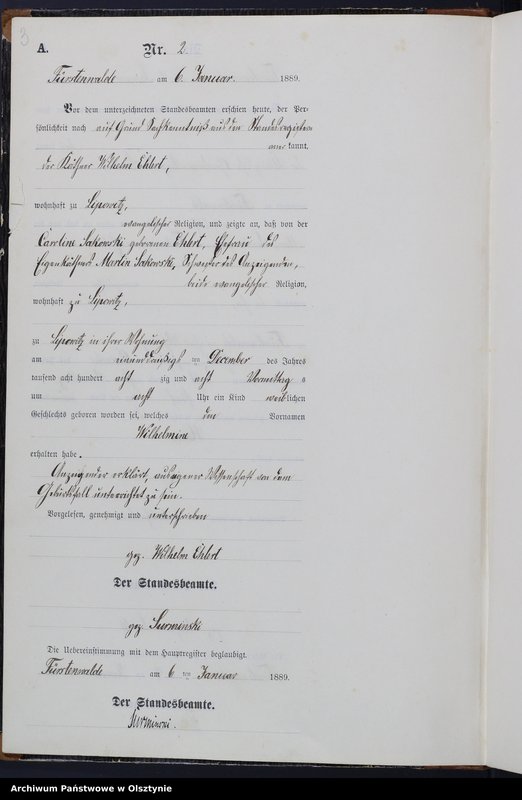 3
A.
Nr. 2.
Fürstenwalde am 6. Januar 1889.
Vor dem unterzeichneten Standesbeamten erschien heute, der Per-
sönlichkeit nach auf Grund Sachkenntniß aus den Standesregistern
aner kannt,
der Käthner Wilhelm Ehlert,
wohnhaft zu Lipowitz,
evangelischer Religion, und zeigte an, daß von der
Caroline Sakowski geborenen Ehlert, Ehefrau des
Eigenkäthners Martin Sakowski, Schwester des Anzeigenden,
beide evangelischer Religion,
wohnhaft zu Lipowitz,
zu Lipowitz in ihrer Wohnung
am einunddreißigsten December des Jahres
tausend acht hundert acht zig und acht Vormittags
um acht Uhr ein Kind weiblichen
Geschlechts geboren worden sei, welches den Vornamen
Wilhelmine
erhalten habe.
Anzeigender erklärt, aus eigener Wissenschaft von dem
Geburtsfall unterrichtet zu sein.
Vorgelesen, genehmigt und unterschrieben
gez. Wilhelm Ehlert
Der Standesbeamte.
gez. Surminski
Die Uebereinstimmung mit dem Hauptregister beglaubigt.
Fürstenwalde am 6 ten Januar 1889.
Der Standesbeamte.
Surminski.
Archiwum Państwowe w Olsztynie